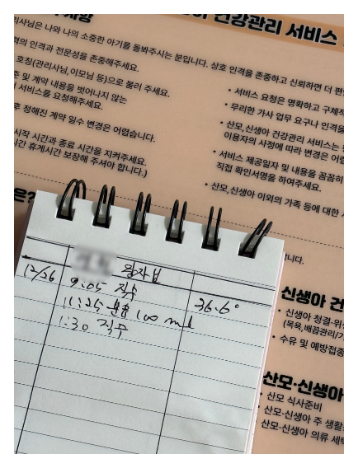 아 건강관리 서비스
리사님은 나와 나의 소중한 아기를 돌봐주시는 분입니다. 상호 인격을 존중하고 신뢰하면 더 편
의 인격과 전문성을 존중해주세요.
호칭(관리사님,이모님 등)으로 불러 주세요.
준 및 계약 내용을 벗어나지 않는
서비스를 요청해주세요.
로 정해진 계약 일수 변경은 어렵습니다.
시작 시간과 종료 시간을 지켜주세요.
간 휴게시간 보장해 주셔야 합니다.)
• 서비스 요청은 명확하고 구체적
• 무리한 가사 업무 요구나 인격을
• 산모,신생아 건강관리 서비스는
이용자의 사정에 따라 변경은 어렵
• 서비스 제공일자 및 내용을 꼼꼼히
직접 확인서명을 하여주세요.
• 산모,신생아 이외의 가족 등에 대한
은?
니다.
12/26
9:05 직수
36.6°
11:25 분유 100 ml
1:30 직수
신생아 건
• 신생아 청결·위생
(목욕,배꼽관리/기
• 수유 및 예방접종
산모·신생아
• 산모 식사준비
• 산모·신생아 주 생활
• 산모·신생아 의류 세탁